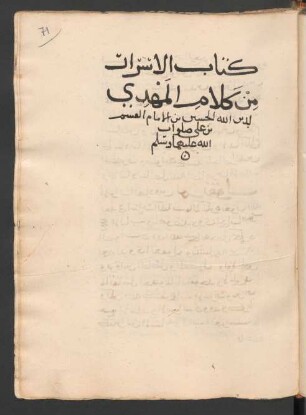 71
كتاب الاسرار
من كلام المهدي
لدين الله الحسين بن الامام القسم
بن علي صلوات
الله عليهما وسلم